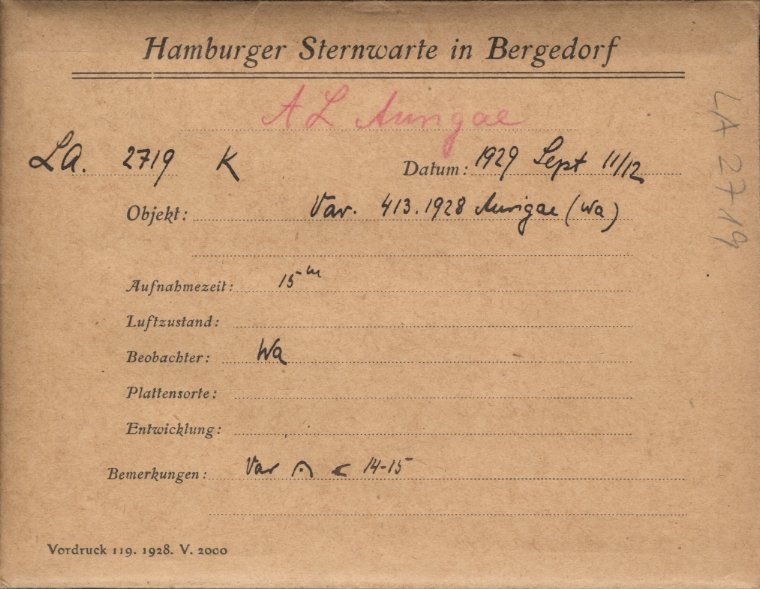 Hamburger Sternwarte in Bergedorf
AL Aurigae
LA. 2719 K Datum: 1929 Sept 11/12
Objekt: Var. 413.1928 Aurigae (Wa)
Aufnahmezeit: 15 m
Luftzustand:
Beobachter: Wa
Plattensorte:
Entwicklung:
Bemerkungen: Var < 14-15
Vordruck 119. 1928. V. 2000
LA 2719